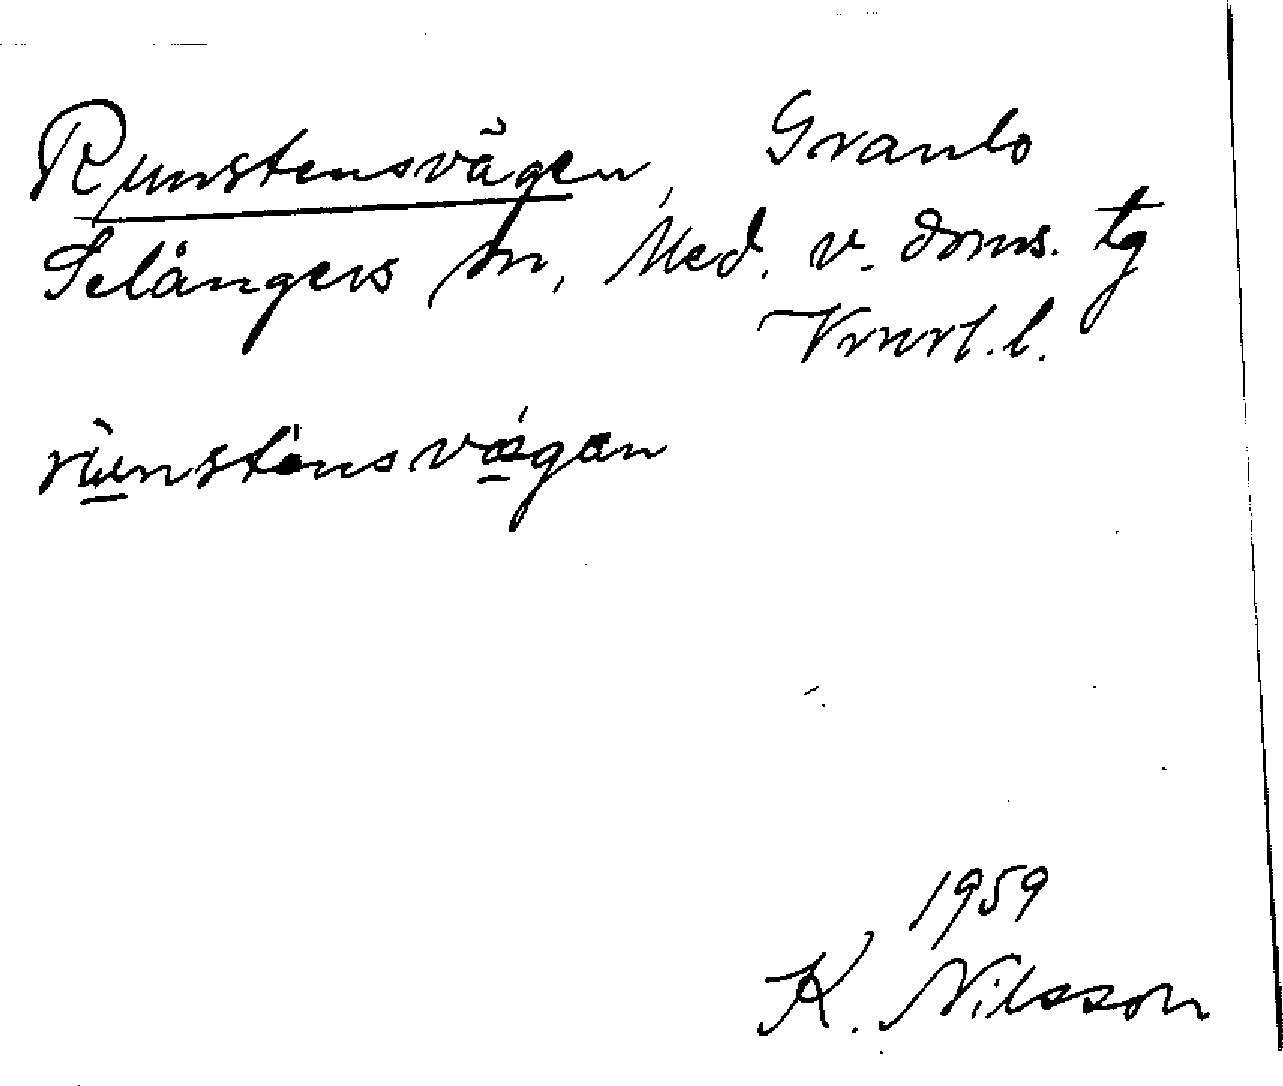 Runstensvägen, Granlo
Selångers sn, Med. v. doms. tg
Vmrl. l.
runstensvägen
1959
K. Nilsson